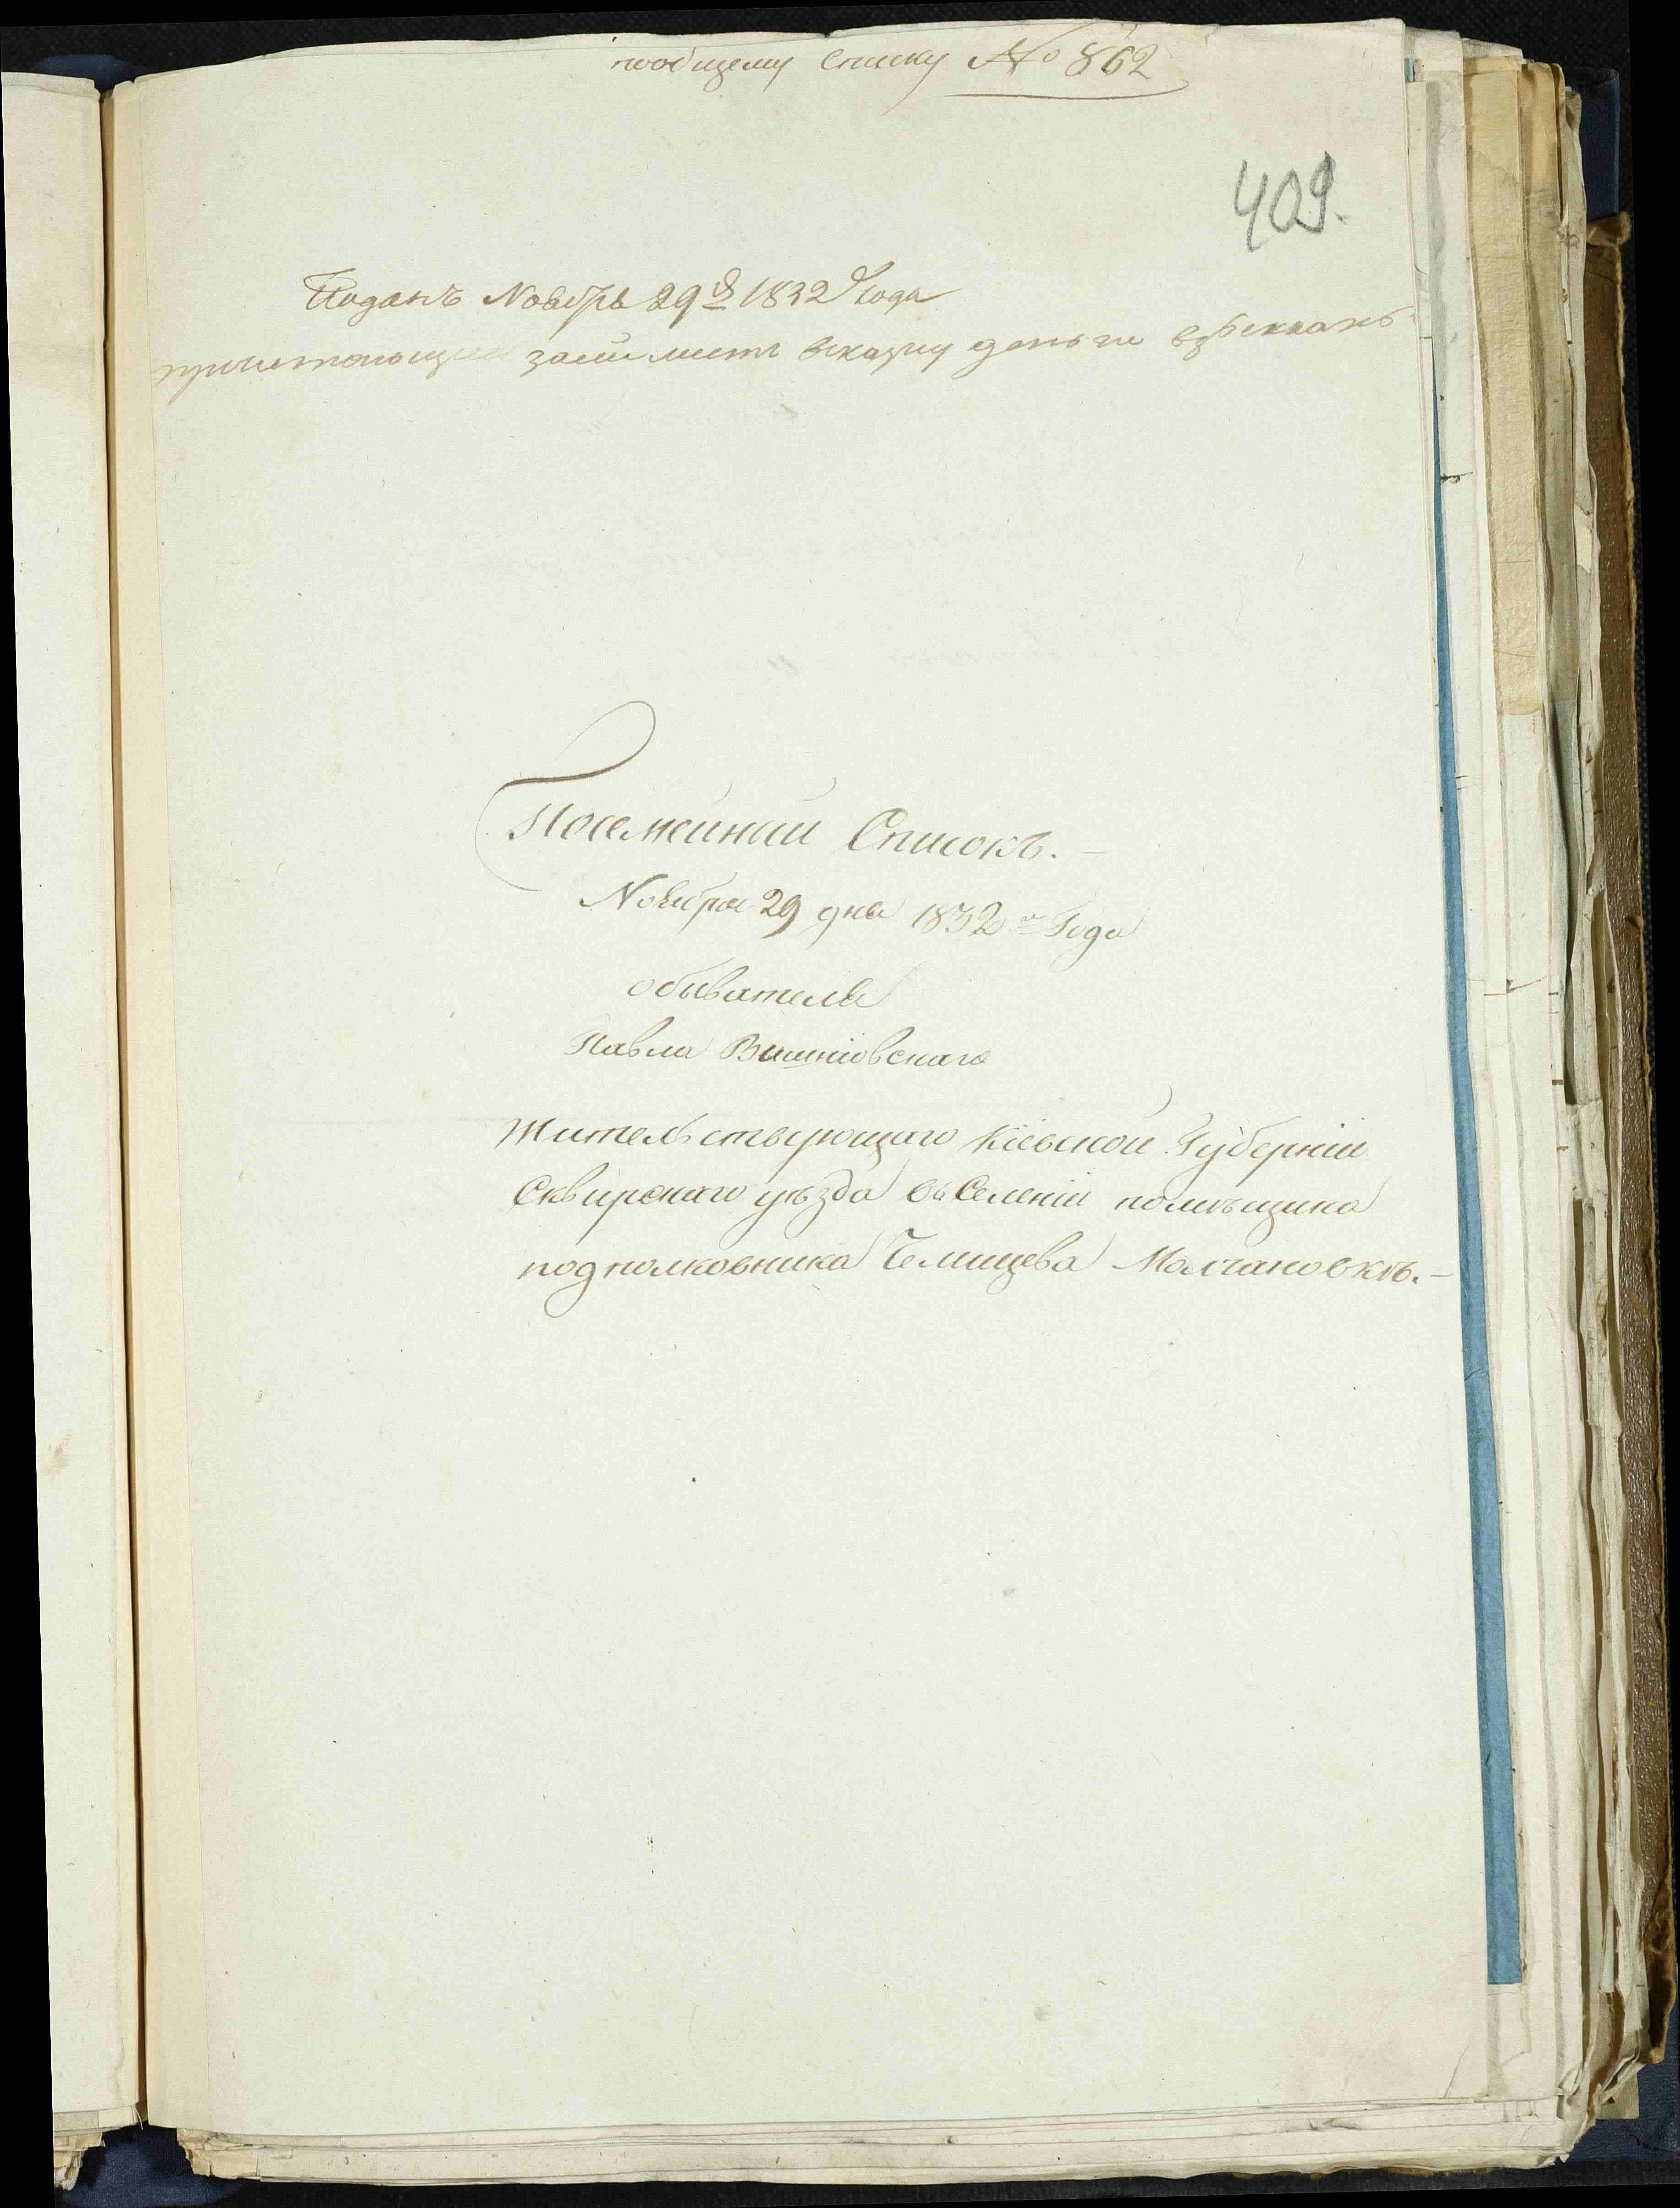 пообщему списку № 862
409.
Поданъ Ноября 29 д 1832 года
причитающіе засей листъ вказну деньги взысканы
Посемейний Списокъ. —
Ноября 29 дня 1832 го Года
обывателя
Павла Вишніовскаго
жительствующаго Кіевской Губерніи
Сквирскаго уѣзда въ Селеніи помѣщика
подполковника Челищева Молчановкѣ. —